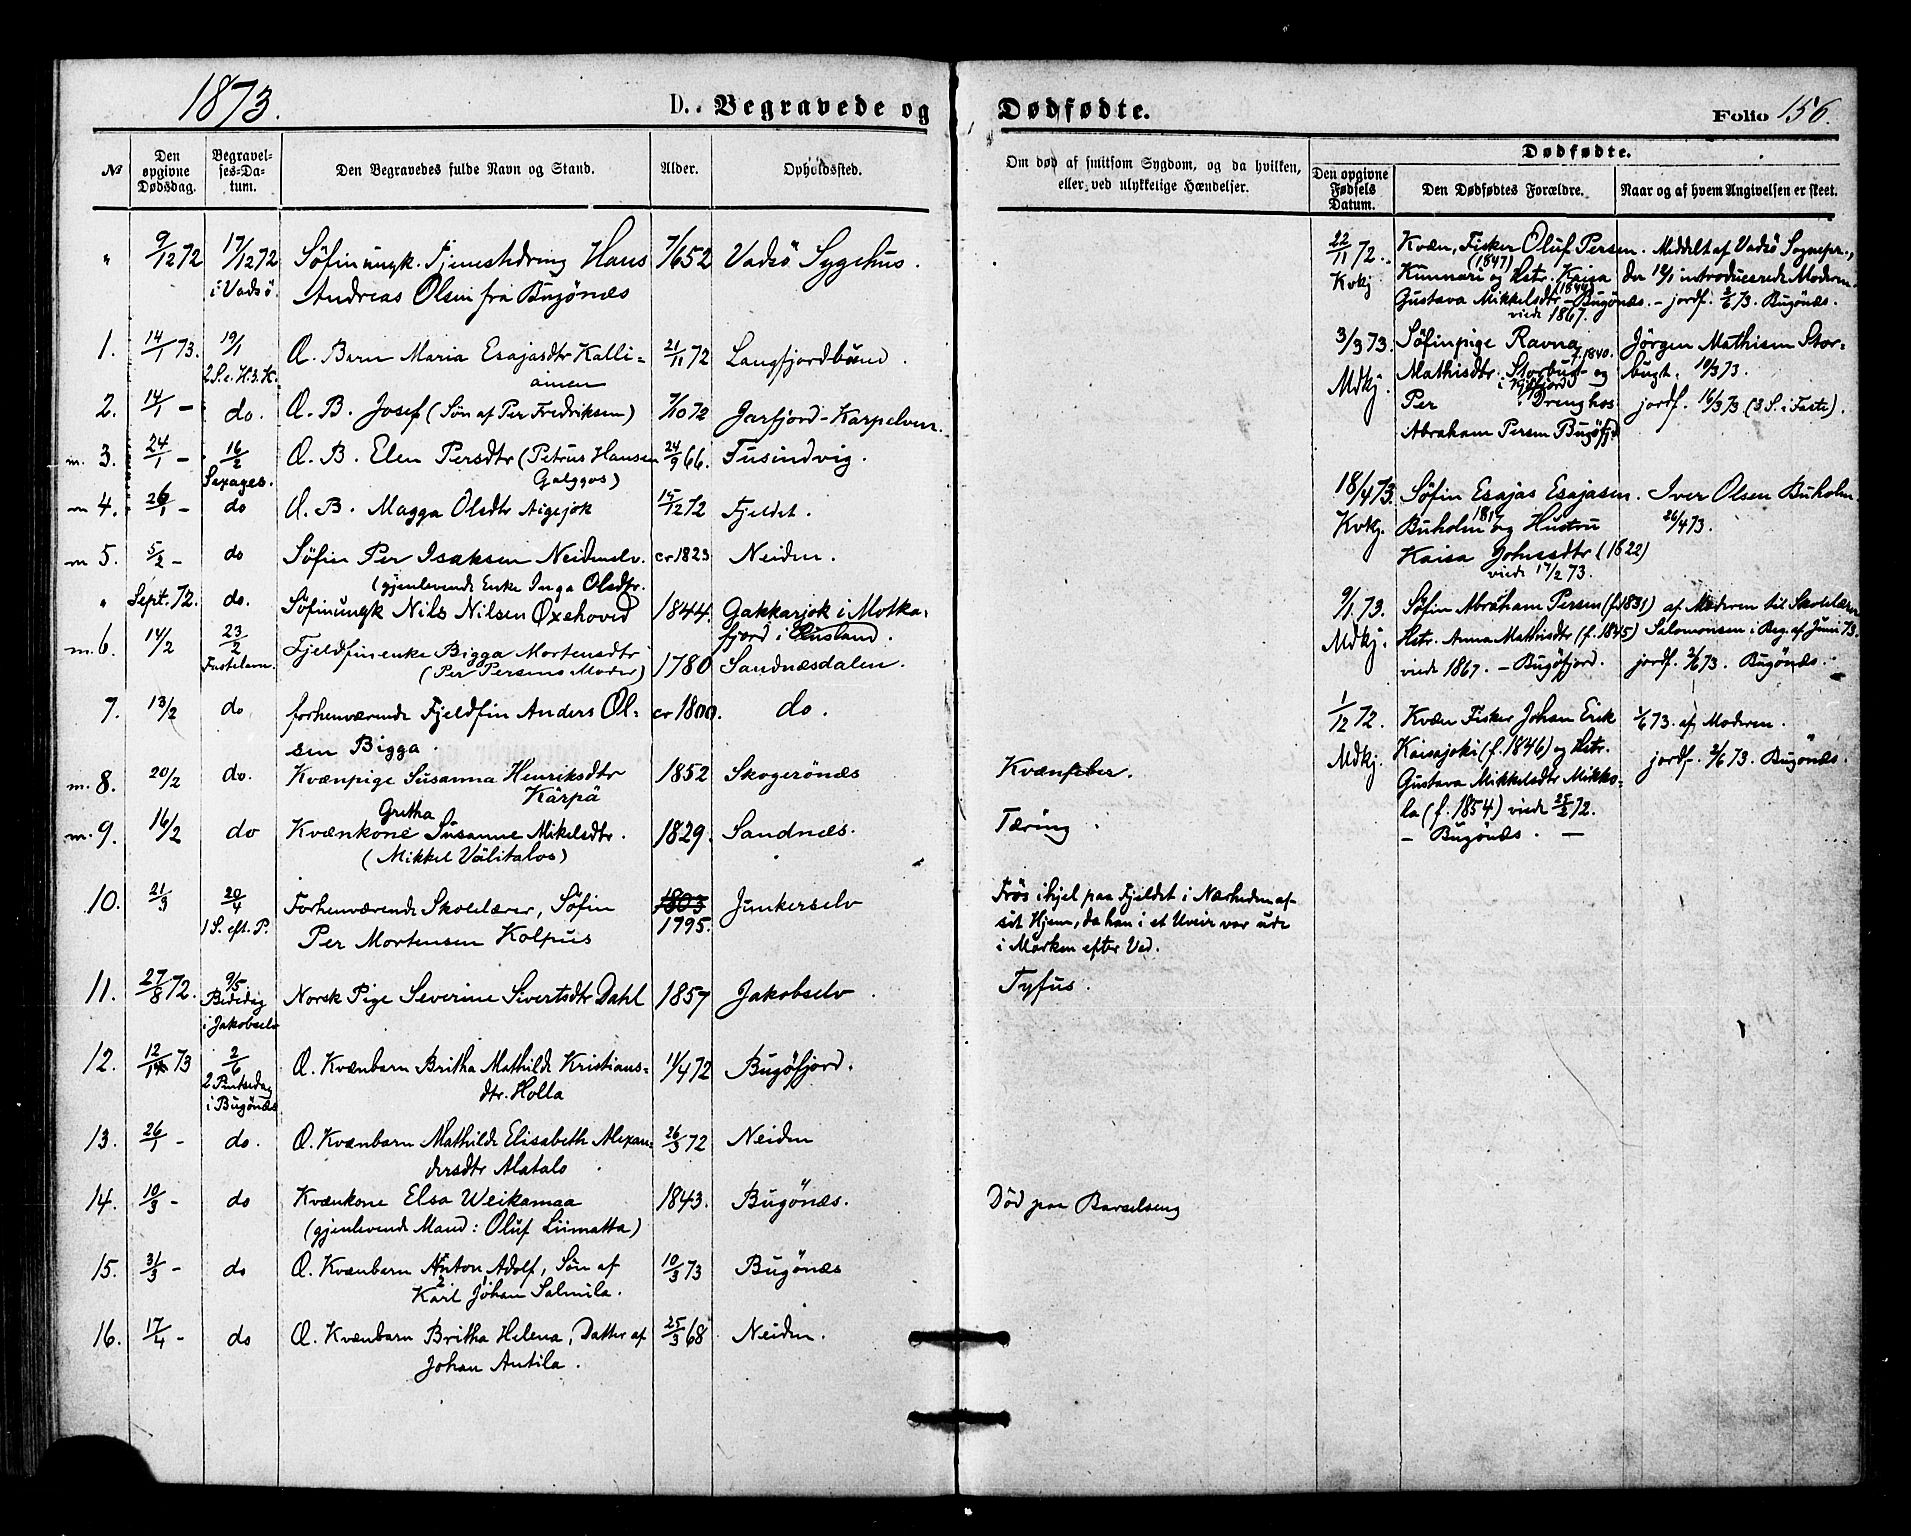 1873.
D. Begravede og Dødfødte.
Folio 156.
No
Den opgivne Dødsdag.
Begravelses-Datum.
Den Begravedes fulde Navn og Stand.
Alder.
Opholdssted.
Om død af smitsom Sygdom, og da hvilken, eller ved ulykkelige Hændelser.
Dødfødte.
Den opgivne Fødsels Datum.
Den Dødfødtes Forældre.
Naar og af hvem Angivelsen er skeet.
" 9/12 72 17/12 72 Söfinungk. Tjenestedreng Hans 7/6 52 Vadsö Sygehus.
i Vadsö. Andreas Olsen fra Bugönæs
1. 14/1 73. 19/1 Æ. Barn Maria Esajasdtr Kalli- 21/11 72 Langfjordbund.
2 S. e. H. 3. K. ainen
2. 14/1 - do. Æ. B. Josef (Sön af Per Fredriksen) 7/10 72 Jarfjord-Karpelven.
m. 3. 24/1 - 16/2 Æ. B. Elen Persdtr (Petrus Hansen 24/9 66. Fusindvig.
Sexages. Galggos)
m 4. 26/1 - do Æ. B. Magga Olsdtr Aigejok 15/12 72 Fjeldet.
m 5. 5/2 - do Söfin Per Isaksen Neidenelv. cr 1823 Neiden.
(gjenlevende Enke Inga Olsdtr.
" Sept. 72. do. Söfinungk Nils Nilsen Oxehoved 1844. Gakkarjok i Motka-
fjord i Rusland.
m. 6. 14/2 23/2 Fjeldfinenke Bigga Mortensdtr 1780 Sandnæsdalen.
Fastelavn. (Per Persens Moder)
7. 13/2 do forhenværende Fjeldfin Anders Ol- cr 1800. do.
sen Bigga.
m. 8. 20/2 do. Kvænpige Susanna Henriksdtr 1852 Skogerönæs Kvænfeber.
Kärpä
Gretha
m. 9. 16/2 do Kvænkone Susanne Mikelsdtr. 1829. Sandnæs. Tæring.
(Mikkel Välitalos)
10. 21/3 20/4 Forhenværende Skolelærer, Söfin 1803 Junkerselv Frös ihjel paa Fjeldet i Nærheden af
1 S. eft. P. Per Mortensen Kolpus 1795. sit Hjem, da han i et Uveir var ude
i Marken efter Ved.
11. 27/8 72. 9/5 Norsk Pige Severine Sivertsdtr Dahl 1857 Jakobselv. Tyfus.
Bededag
i Jakobselv
12. 12/1 73 2/6 Æ. Kvænbarn Britha Mathilde Kristians- 11/4 72 Bugöfjord.
2 Pintsedag dtr. Holla
i Bugönæs
13. 26/1 - do. Æ. Kvænbarn Mathilde Elisabeth Alexan- 26/3 72 Neiden
dersdtr Alatalo.
14. 10/3 - do Kvænkone Elsa Weikamaa 1843. Bugönæs. Död paa Barselseng
(gjenlevende Mand: Oluf Liimatta)
15. 31/3 - do Æ. Kvænbarn Anton Adolf, Sön af 10/3 73 Bugönæs
Karl Johan Salmila.
16. 17/4 - do Æ. Kvænbarn Britha Helena, Datter af 25/3 68 Neiden.
Johan Antila.
22/11 72. Kvæn, Fisker Oluf Persen Meddelt af Vadsö Sognepr.,
Kvkj (1847)
Kunnari og Hstr. Kaisa der 12/1 introducerede Moderen.
Gustava Mikkelsdtr - Bugönæs. - jordf. 2/6 73. Bugönæs.
viede 1867.
3/3 73. Söfinpige Ravna Jörgen Mathisen Stor-
Mdkj. Mathisdtr. f. 1840. Storbugt og bugt. 10/3 73.
Per Drenghos jordf. 16/3 73 (3. S. i Faste).
Abraham Persen Bugöfjd
18/4 73. Söfin Esajas Esajasen. Iver Olsen Buholm
Kvkj. 1817
Buholm og Hustru 26/4 73.
Kaisa Johnsdtr (1822)
viede 17/2 73.
9/1 73. Söfin Abraham Persen (f. 1831) af Moderen til Skolelærer
Mdkj. Hstr. Anna Mathisdtr (f. 1845) Salomonsen i Beg. af Juni 73.
viede 1867. - Bugöfjord. jordf. 2/6 73. Bugönæs.
1/12 72. Kvæn Fisker Johan Erik 1/6 73. af Moderen.
Mdkj. Kaisajoki (f. 1846) og Hstr. jordf. 2/6 73. Bugönæs.
Gustava Mikkelsdtr Mikko-
la (f. 1854) viede 25/2 72.
- Bugönæs. -